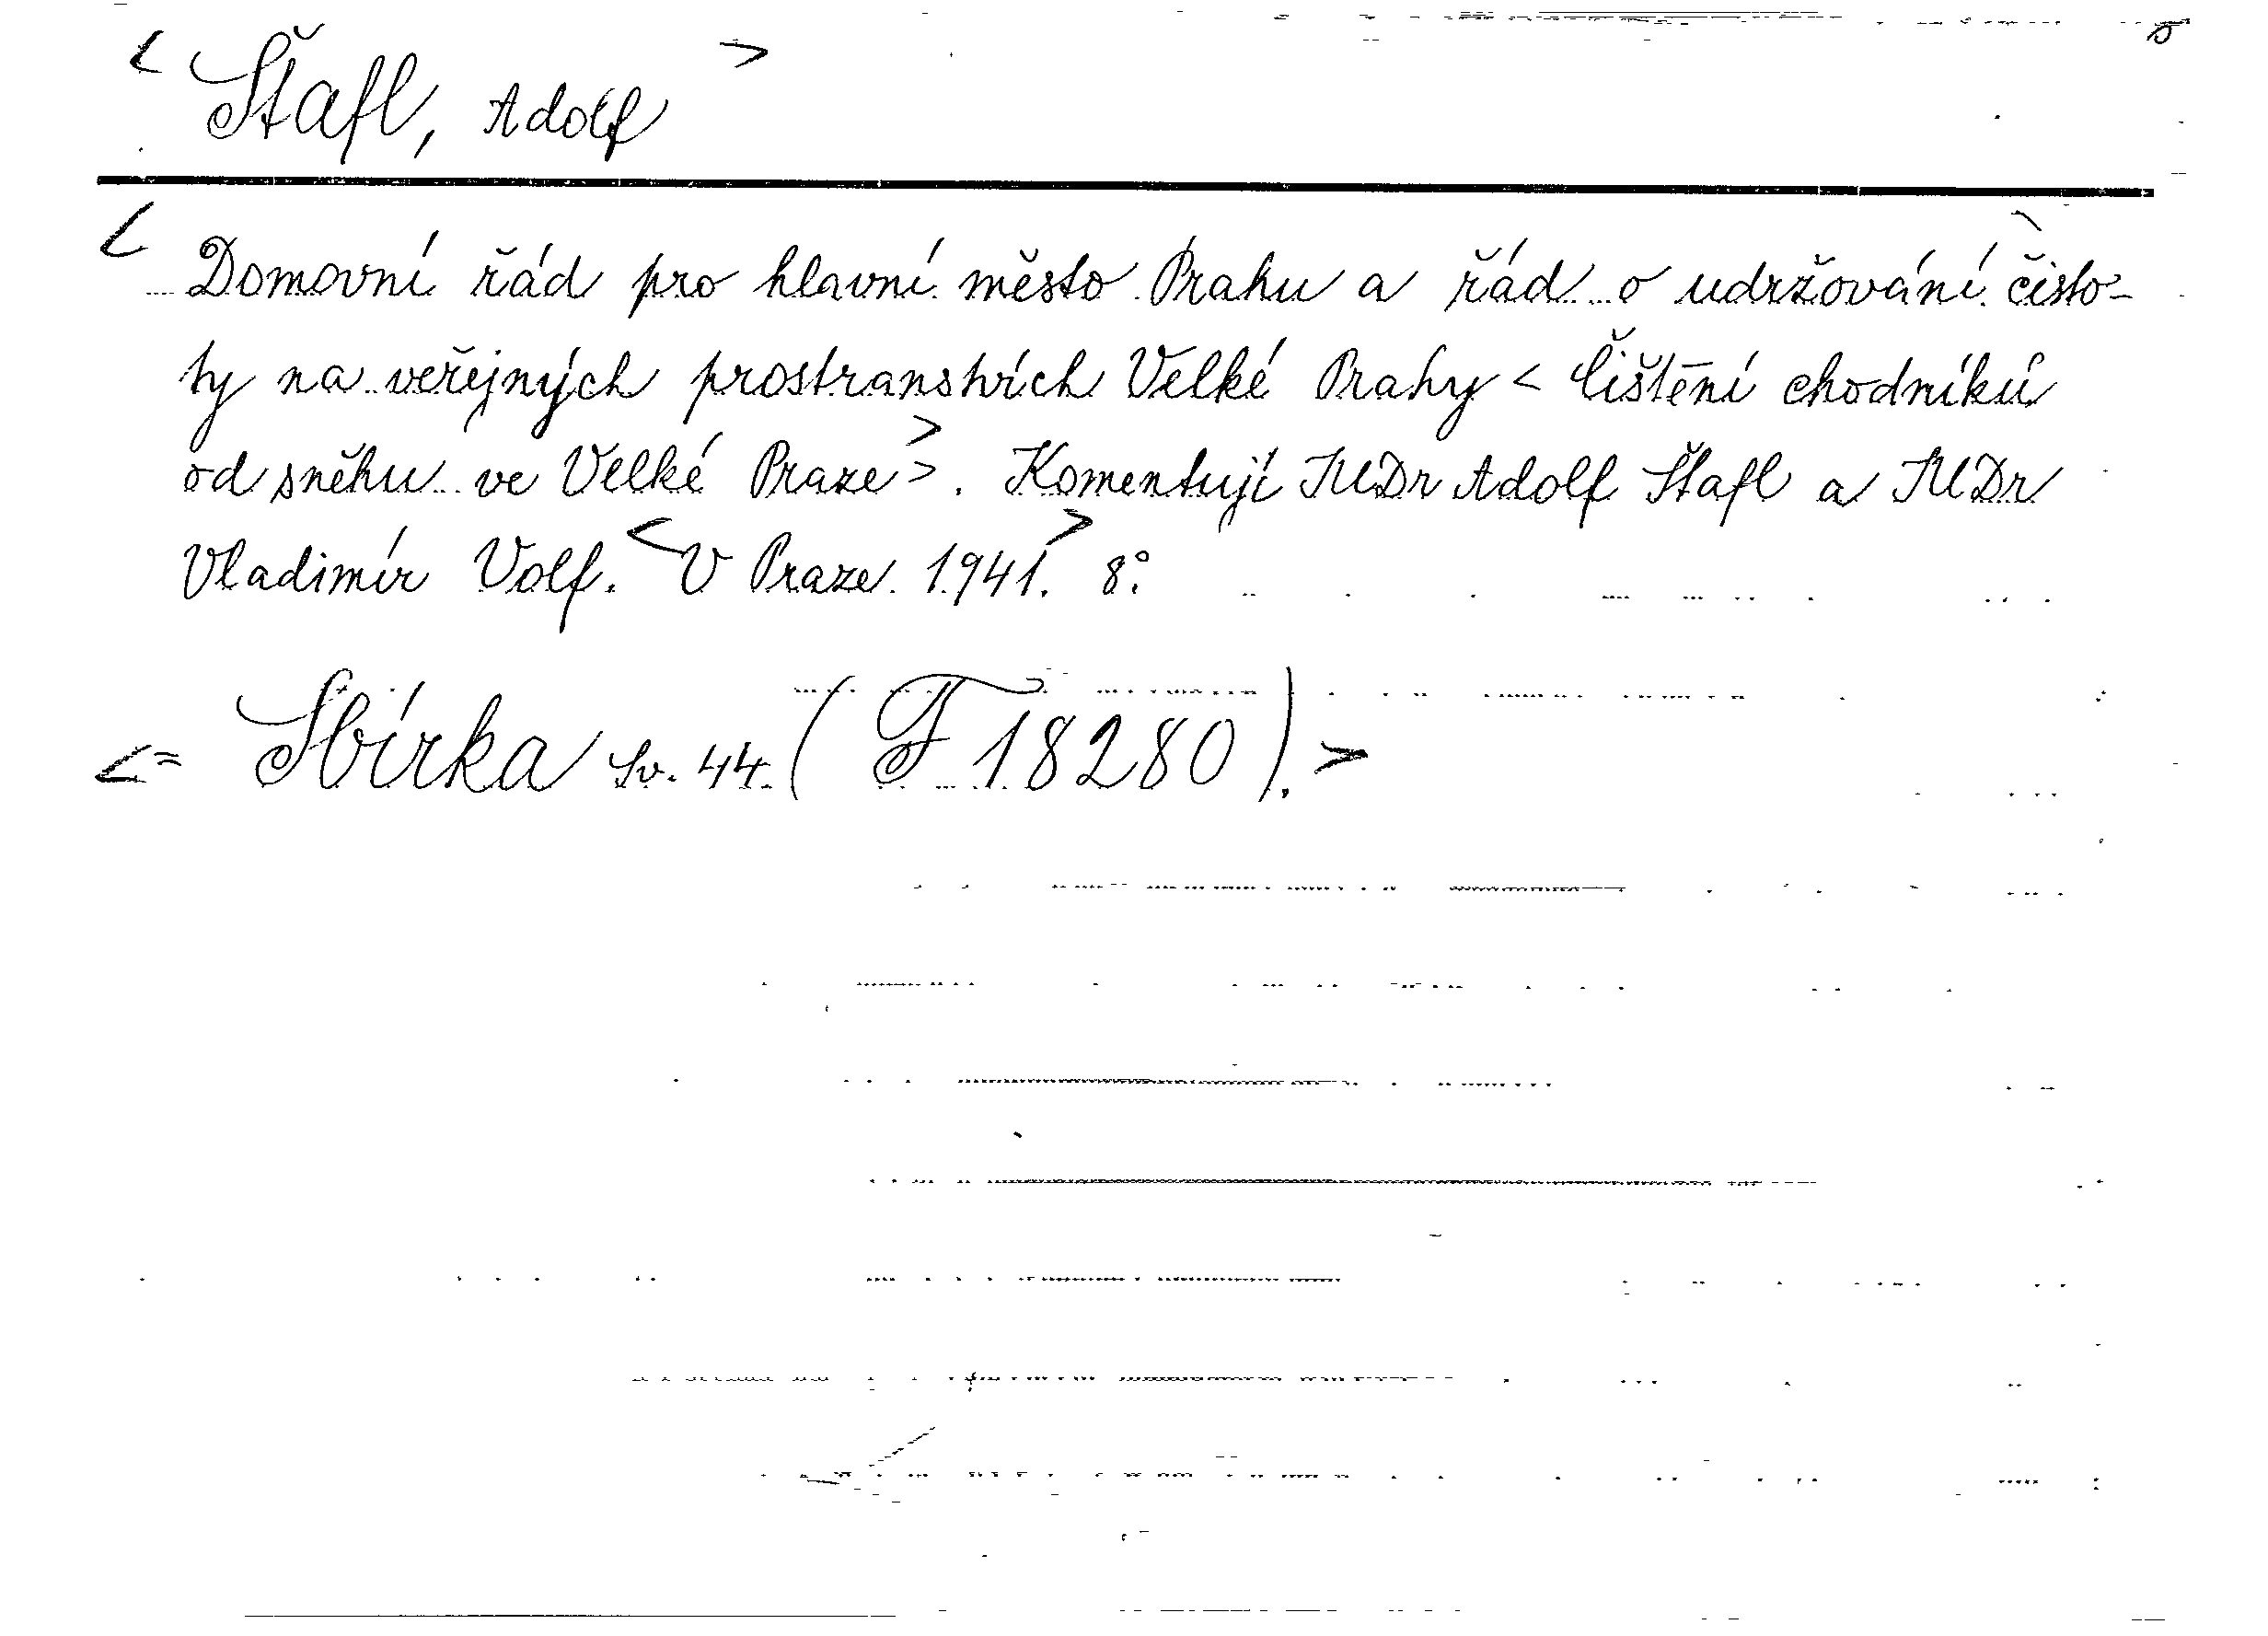 < Štafl, Adolf >
< Domovní řád pro hlavní město Prahu a řád o udržování čisto-
ty na veřejných prostranstvích Velké Prahy < Čištění chodníků
od sněhu ve Velké Praze > >. Komentují JUDr Adolf Štafl a JUDr
Vladimír Volf. < V Praze 1941. > 8°.
<= Sbírka sv. 44. ( F 18280 ). >